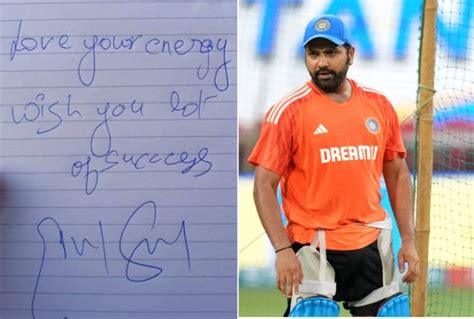 Love your energy
wish you lot
of success
DREAM11